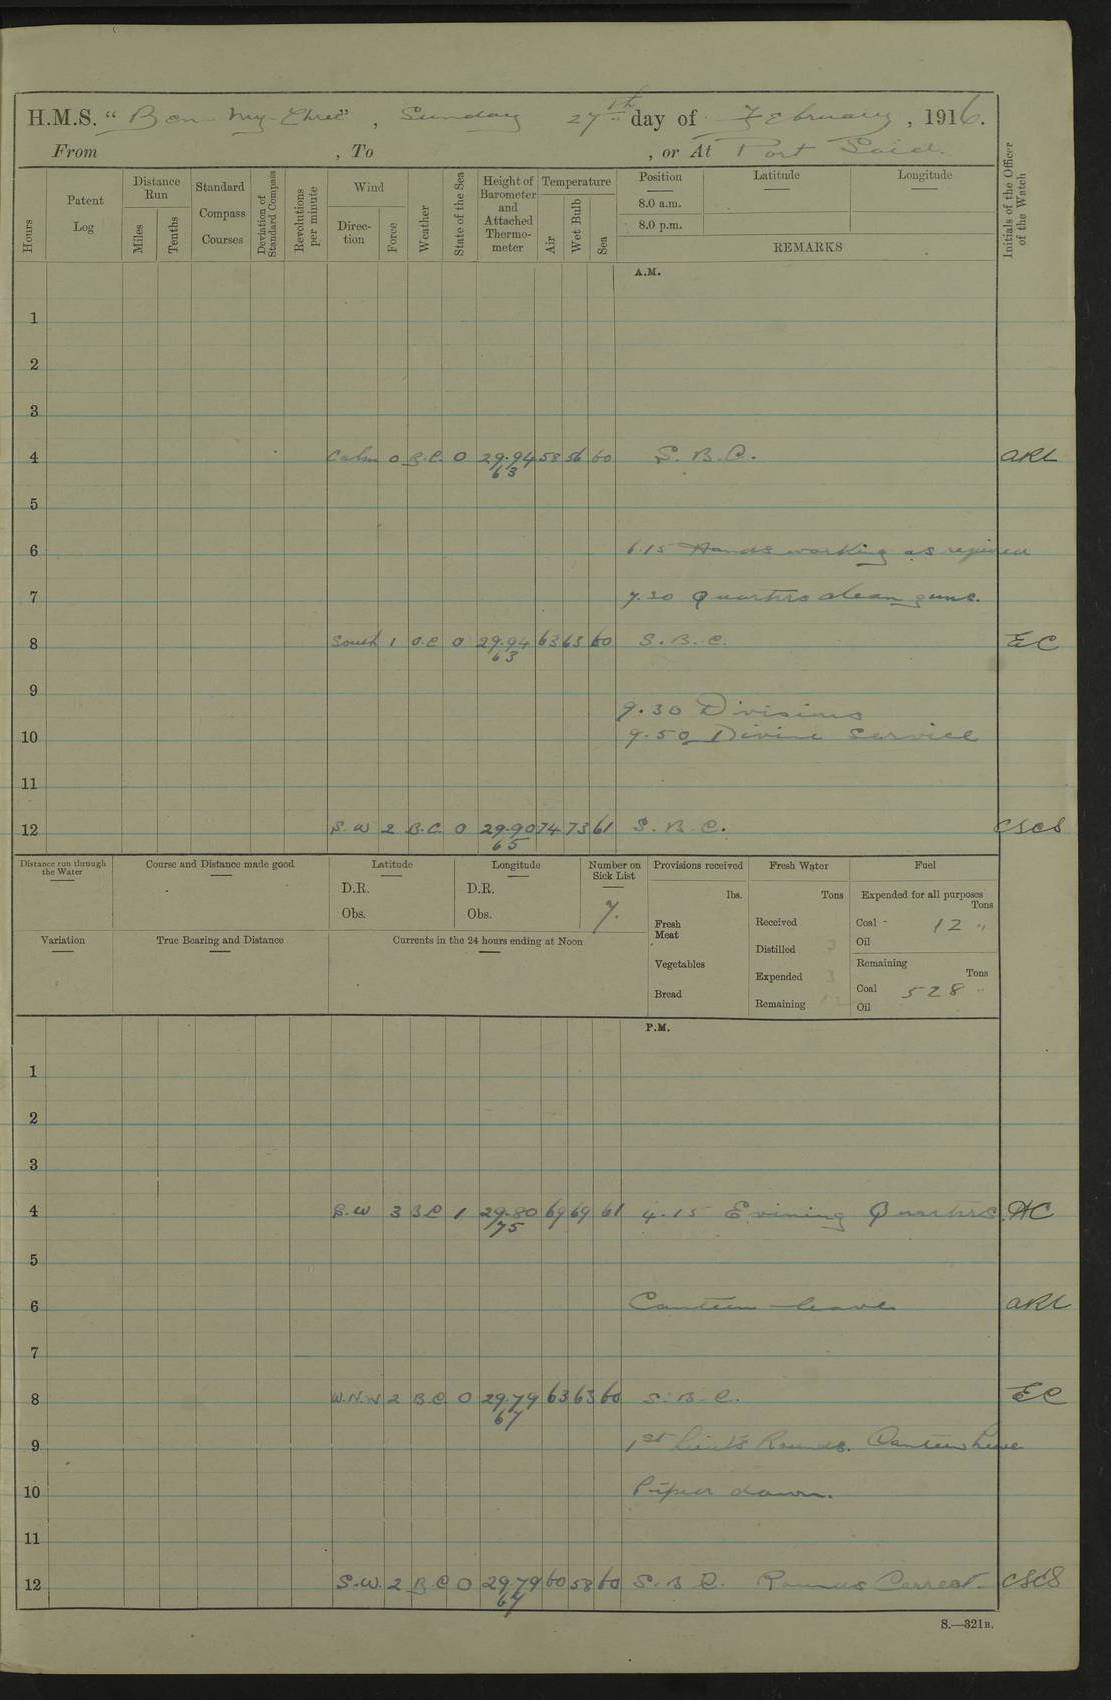 H.M.S. "Ben-my-Chree", Sunday 27th day of February, 1916.
From , To , or At Port Said.
Hours
Patent Log
Distance Run
Miles
Tenths
Standard Compass Courses
Deviation of Standard Compass
Revolutions per minute
Wind
Direction
Force
Weather
State of the Sea
Height of Barometer and Attached Thermometer
Temperature
Air
Wet Bulb
Sea
Position
8.0 a.m.
8.0 p.m.
Latitude
Longitude
REMARKS
Initials of the Officer of the Watch
A.M.
1
2
3
4 Calm 0 B.C. 0 29.94 63 58 56 60 S.B.C. ARL
5
6 6.15 Hands working as required
7 7.30 Quarters clean guns.
8 South 1 B.C 0 29.94 63 63 63 60 S.B.C. EC
9
9.30 Divisions
10 9.50 Divine Service
11
12 S.W 2 B.C. 0 29.90 65 74 73 61 S.B.C. CSCS
Distance run through the Water
Course and Distance made good
Latitude
D.R.
Obs.
Longitude
D.R.
Obs.
Number on Sick List
7.
Provisions received
lbs.
Fresh Meat
Vegetables
Bread
Fresh Water
Tons
Received
Distilled
Expended
Remaining
Fuel
Expended for all purposes
Tons
Coal - 12 "
Oil
Remaining
Tons
Coal 528 "
Oil
Variation
True Bearing and Distance
Currents in the 24 hours ending at Noon
P.M.
1
2
3
4 S.W 3 BC 1 29.80 75 69 69 61 4.15 Evening Quarters. AC
5
6 Canteen leave ARL
7
8 W.N.W 2 B.C. 0 29.79 67 63 63 60 S.B.C. EC
9 1st Lieuts Rounds. Canteen leave
10 Piped down.
11
12 S.W. 2 B.C 0 29.79 64 60 58 60 S.B.C. Rounds Correct. CSCS
S.—321B.